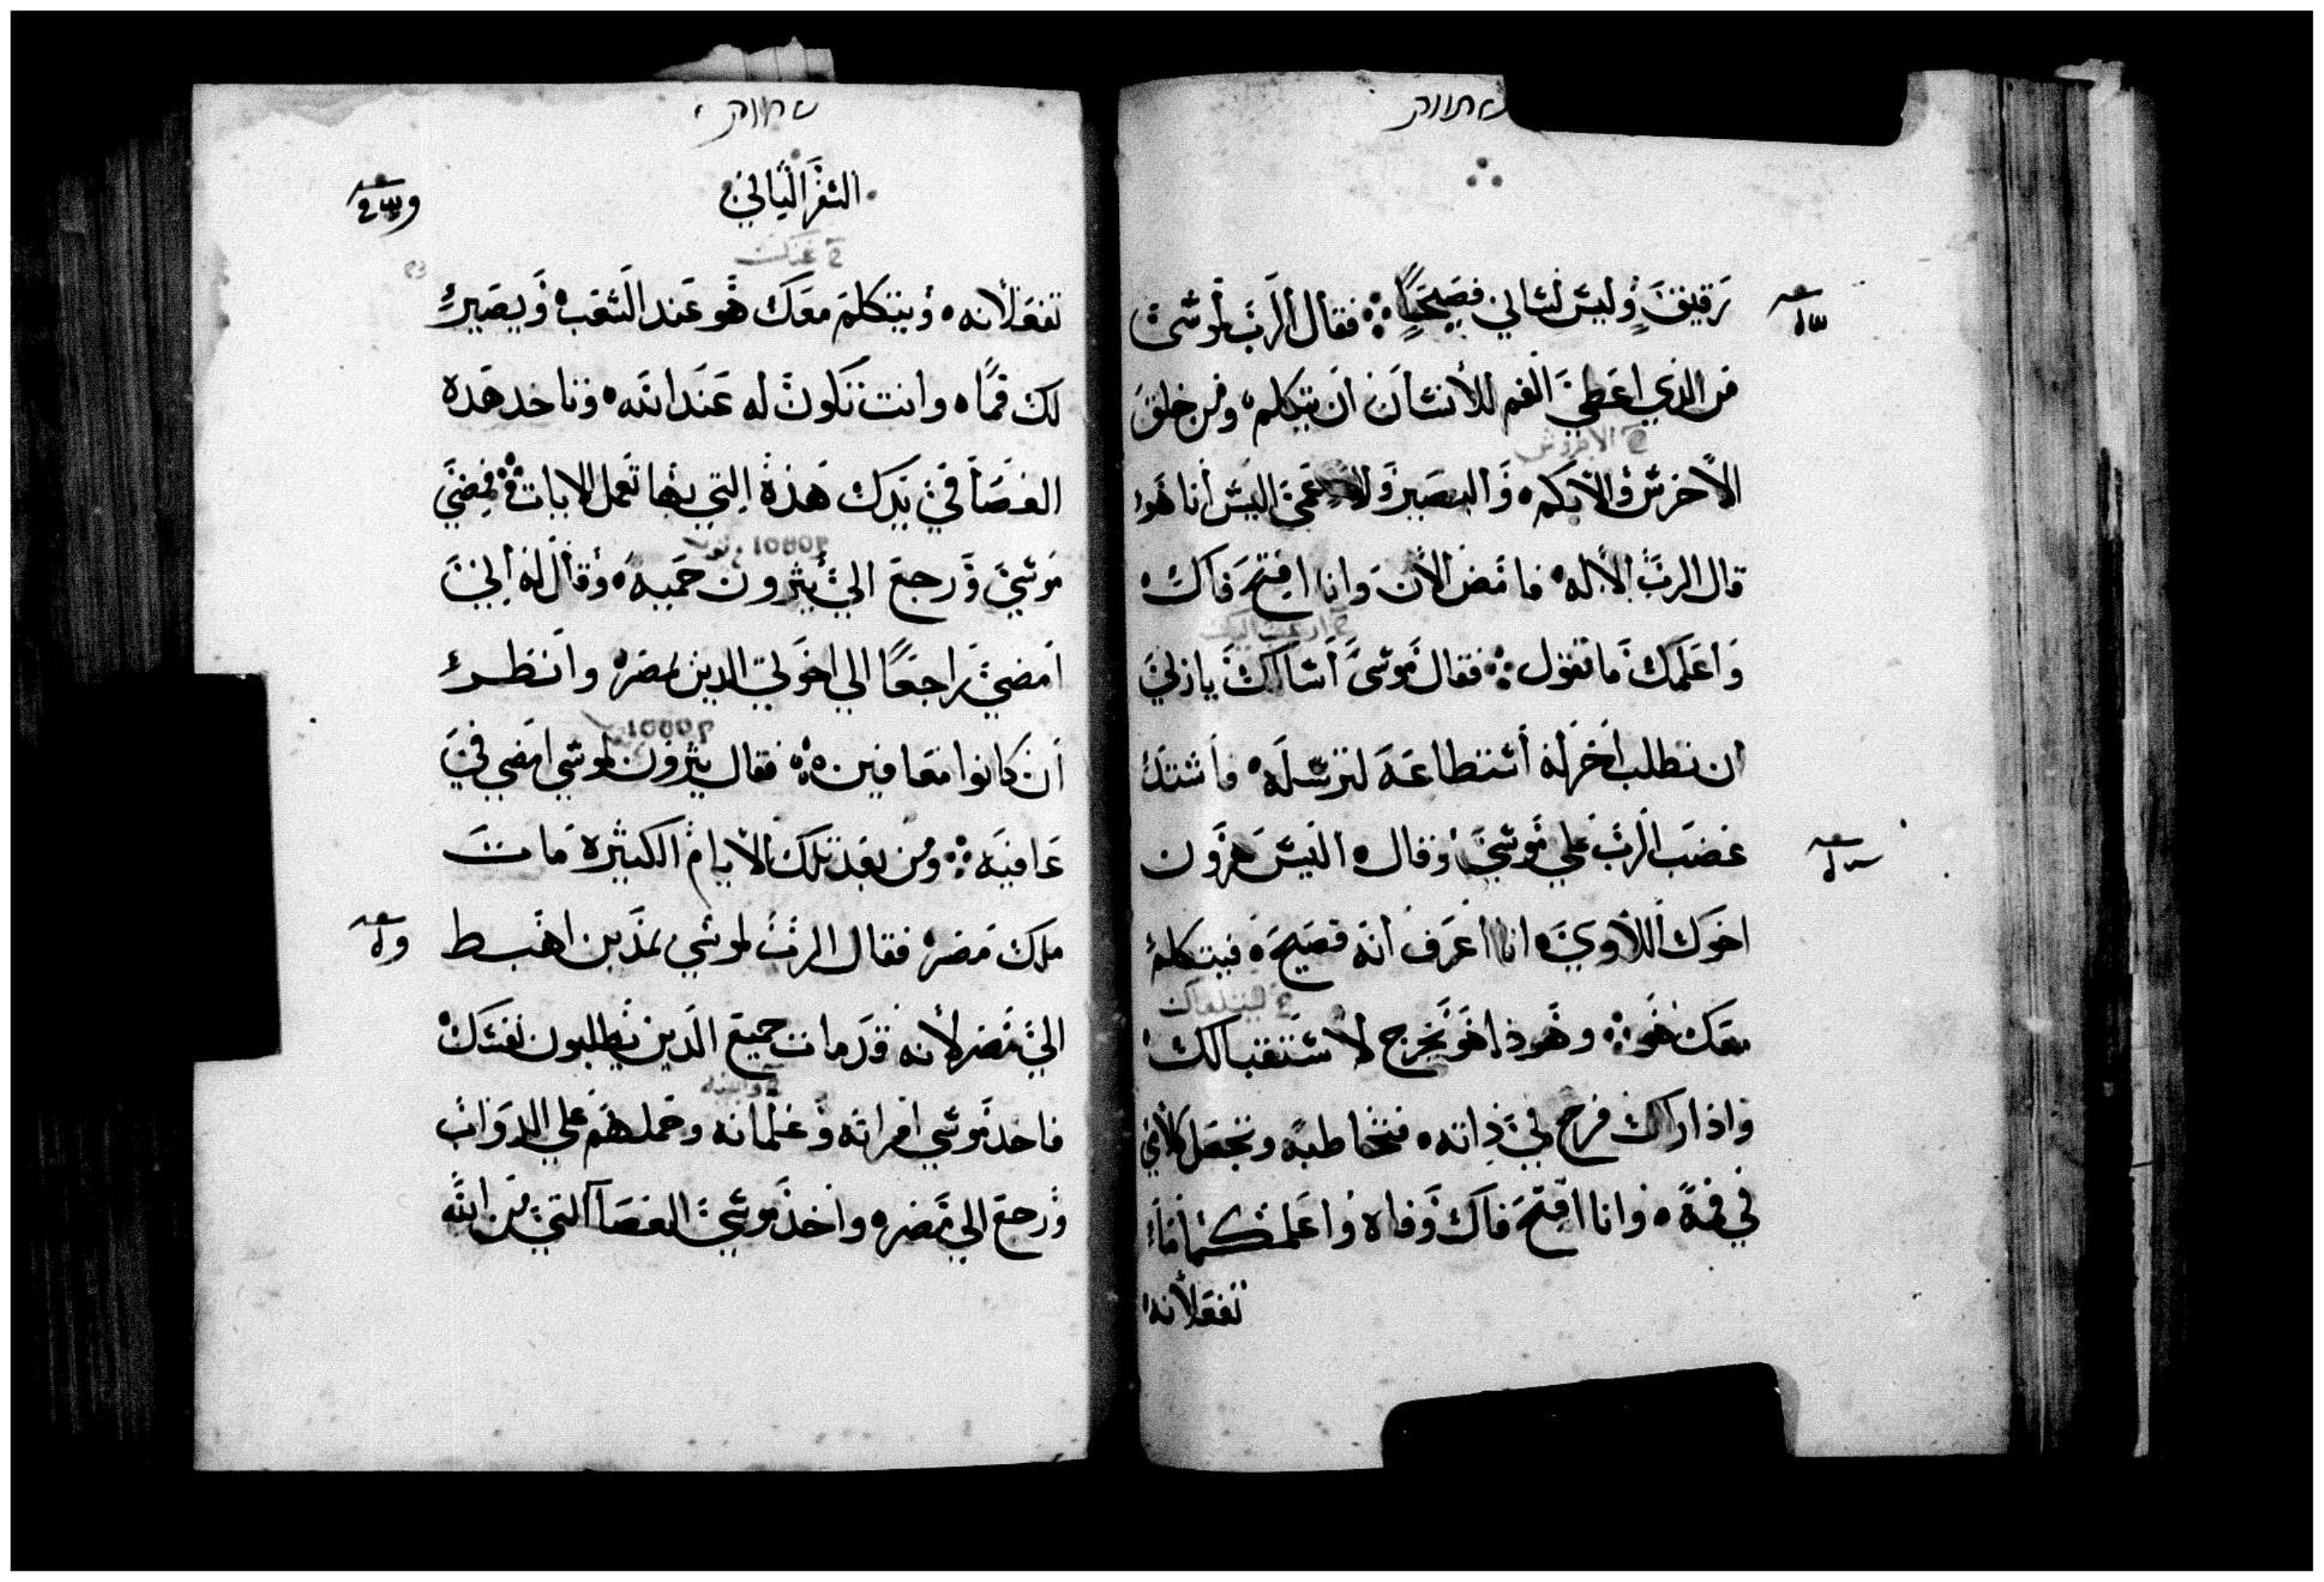 رقيق وليس لساني فصيحًا ∴ فقال الرب لموسى
من الذي اعطى الفم للأنسان ان يتكلم ومن خلق
الأخرس والأبكم والبصير والاعمى اليس أنا هو
قال الرب الأله فامض الأن وانا افتح فاك
واعلمك ما تقول ∴ فقال موسى أسألك يا
ان تطلب اخر له أستطاعه لترسله فأشتد
غضب الرب علي موسي وقال اليس هرون
اخوك اللاوي انا أعرف أنه فصيح فيتكلم
معك هو ∴ وهوذا هو يخرج لأستقبالك
واذا راك فرح في ذاته فتخاطبه وتجعل كلامي
في فمه وانا افتح فاك وفاه واعلمكما ما
تفعلانه
السفر الثاني
تفعلانه ويتكلم معك هو عند الشعب ويصير
لك فمًا وانت تكون له عند الله وتاخد هده
العصا في يدك هذه التي بها تعمل الايات ∴ فمضي
موسي ورجع الي يثرون حميه وقال له إني
أمضي راجعًا الي اخوتي الدين بمصر وانظر
ان كانوا معافين ∴ فقال يثرون لموسي امضي في
عافيه ∴ ومن بعد تلك الأيام الكثيرة مات
ملك مصر فقال الرب لموسي بمدين اهبط
الي مصر لأنه قد مات جميع الدين يطلبون نفسك
فاخد موسي امراته وغلمانه وحملهم علي الدواب
ورجع الي مصر واخذ موسي العصا التي من الله